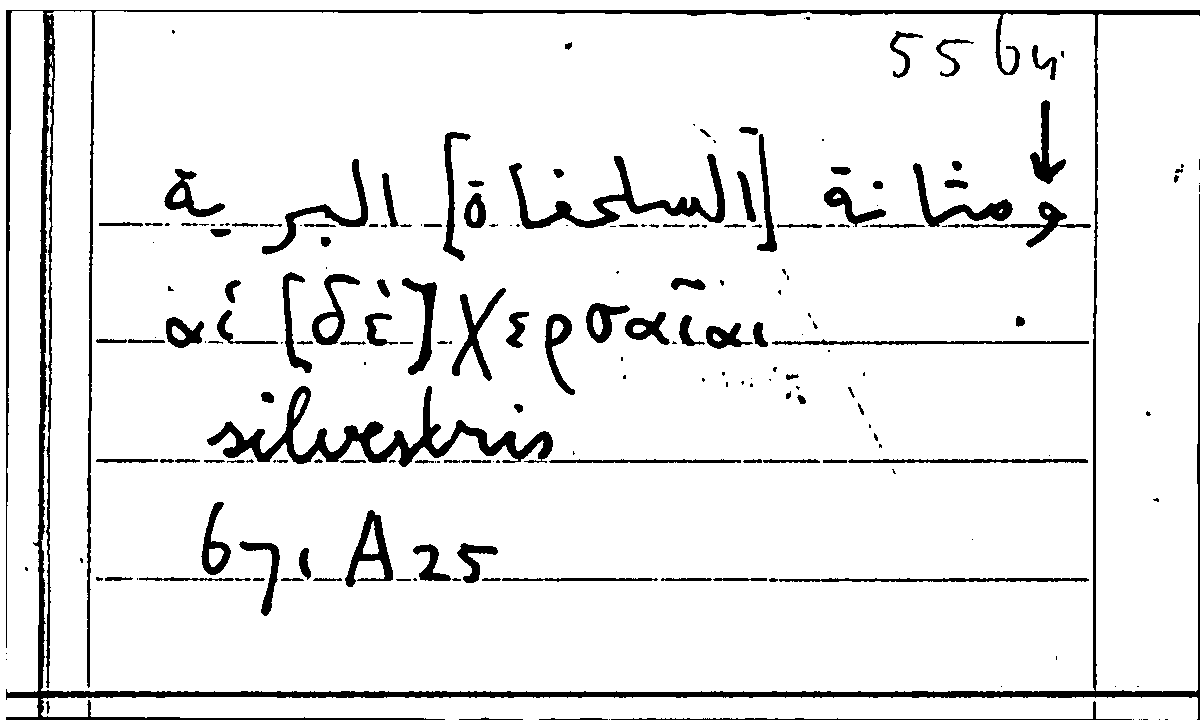 5564
↓
ومثانة [السلحفاة] البرية
αἱ [δὲ] χερσαῖαι
silvestris
671 A 25